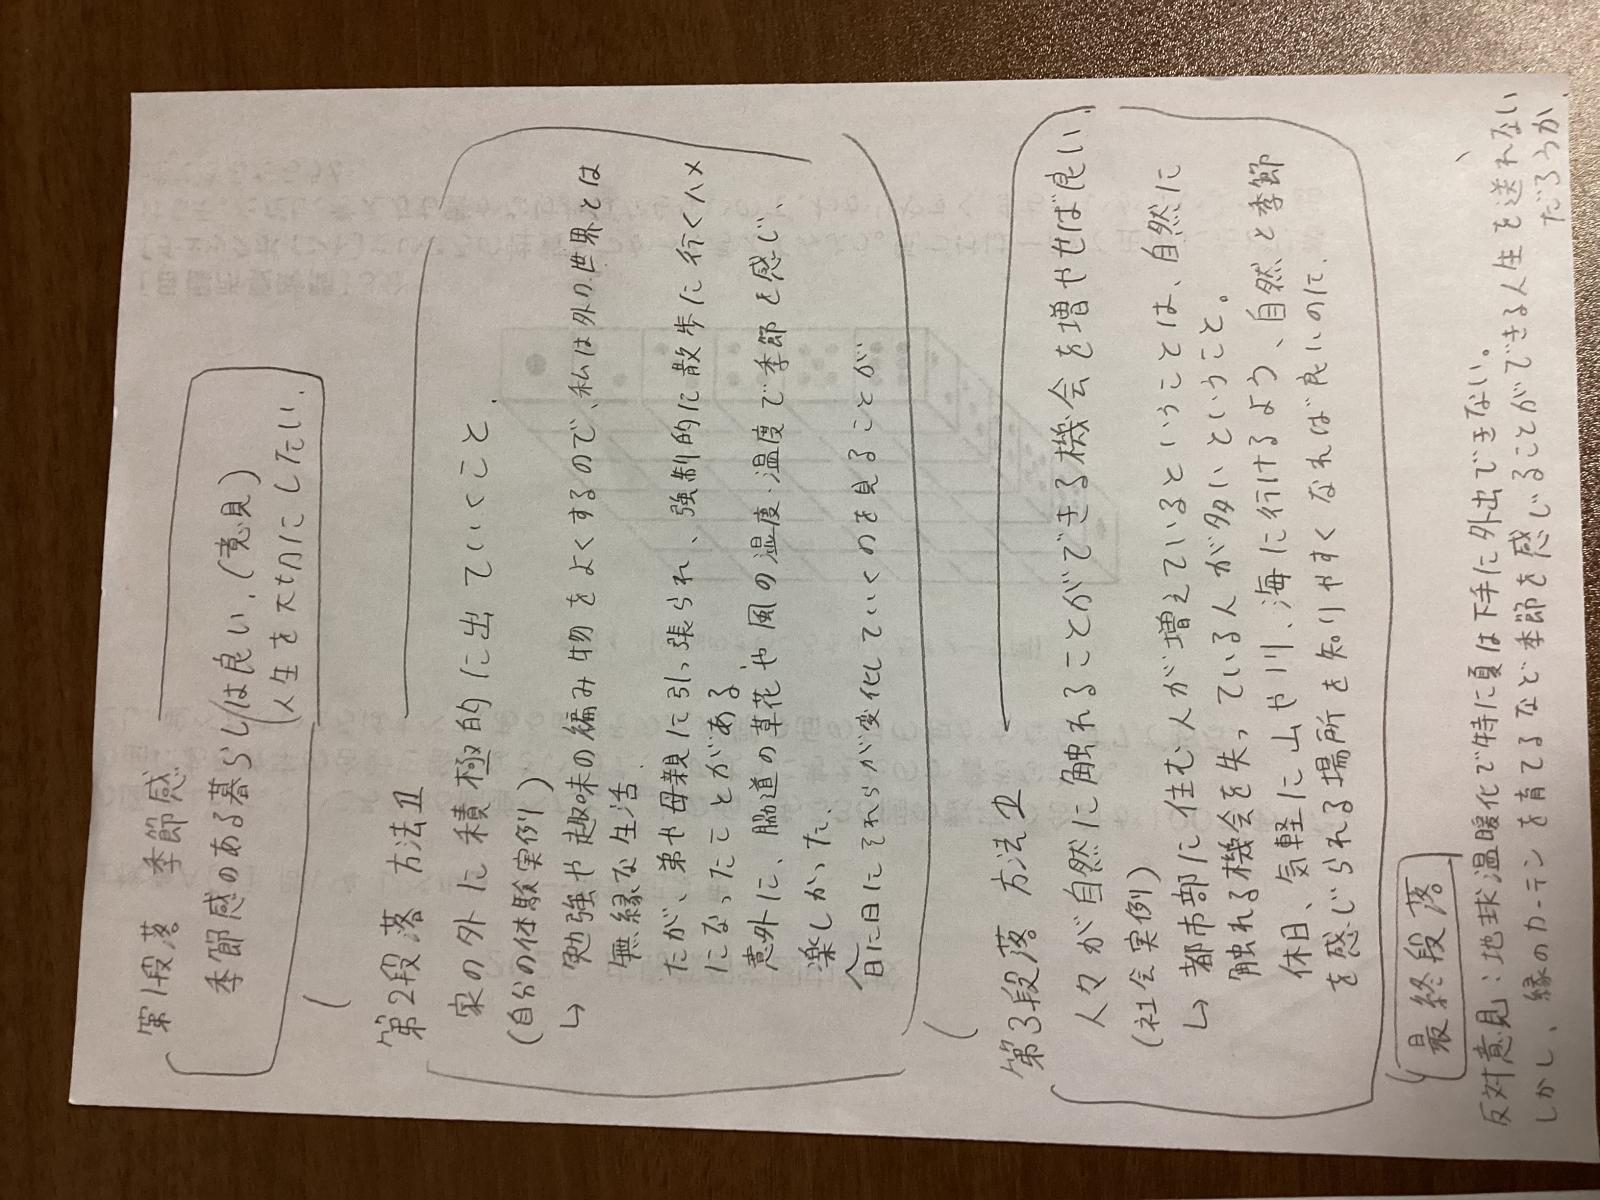 第1段落 季節感
季節感のある暮らしは良い.(意見)
(人生を大切にしたい.
第2段落 方法Ⅱ
家の外に積極的に出ていくこと.
(自分の体験実例)
↳ 勉強や趣味の編み物をよくするので、私は外の世界とは
無縁な生活.
たが、弟や母親に引っ張られ、強制的に散歩に行くハメ
になったことがある.
意外に、脇道の草花や風の湿度・温度で季節を感じ、
楽しかった.
日に日にそれらが変化していくのを見ることが
第3段落 方法Ⅱ
人々が自然に触れることができる機会を増やせば良い.
(社会実例)
↳ 都市部に住む人が増えているということは、自然に
触れる機会を失っている人が多いということ。
休日、気軽に山や川、海に行けるよう、自然と季節
を感じられる場所を知りやすくなれば良いのに.
最終段落
反対意見:地球温暖化で特に夏は下手に外出できない。
しかし、緑のカーテンを育てるなど季節を感じることができる人生を送れない
だろうか.